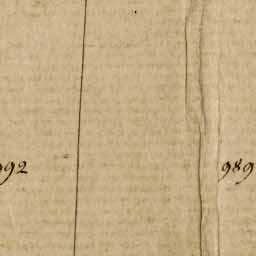 992 989